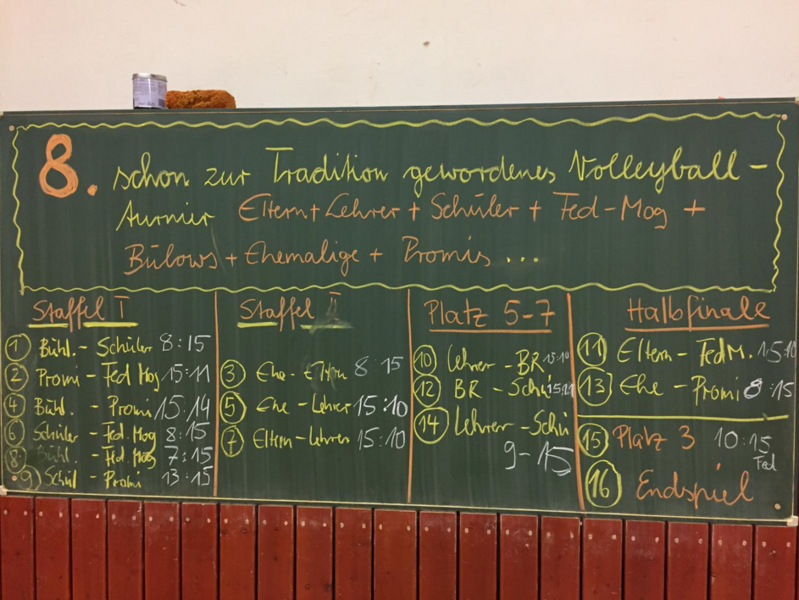 8. schon zur Tradition gewordenes Volleyball-
turnier Eltern + Lehrer + Schüler + Fed-Mog +
Bülows + Ehemalige + Promis ...
Staffel I
1 Bühl. - Schüler 8:15
2 Promi - Fed Mog 15:11
4 Bühl. - Promi 15:14
6 Schüler - Fed.Mog 8:15
8 Bühl. - Fed.Mog 7:15
9 Schül - Promi 13:15
Staffel II
3 Ehe - Eltern 8:15
5 Ehe - Lehrer 15:10
7 Eltern - Lehrer 15:10
Platz 5-7
10 Lehrer - BR 15:10
12 BR - Schü
14 Lehrer - Schü
9-15
Halbfinale
11 Eltern - FedM. 15:10
13 Ehe - Promi 8:15
15 Platz 3 10:15
Fed
16 Endspiel